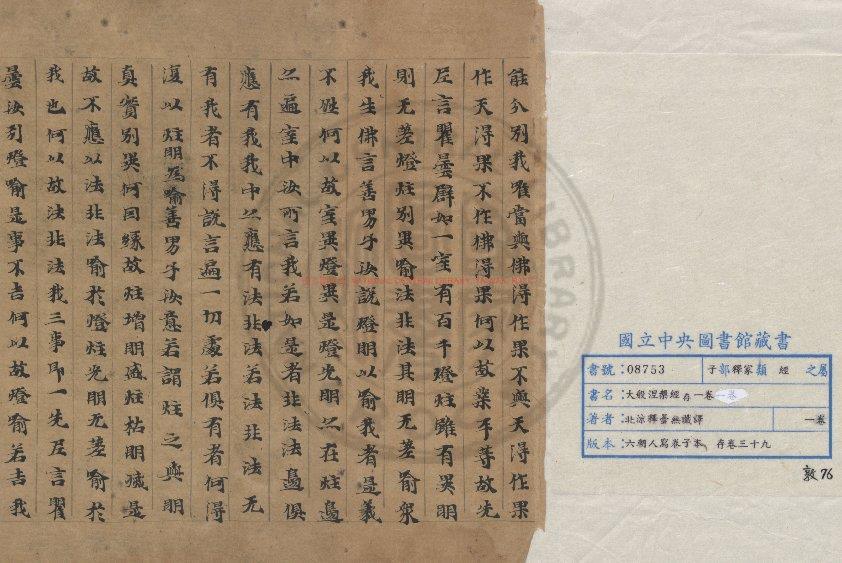 能分別我唯當與佛得作果不與天得作果
作天得果不作佛得果何以故業平等故先
尼言瞿曇辟如一室有百千燈炷雖有異明
則无差燈炷別異喻法非法其明无差喻衆
我生佛言善男子汝說燈明以喻我者是義
不然何以故室異燈異是燈光明亦在炷邊
亦遍室中汝所言我若如是者非法法邊俱
應有我我中亦應有法非法若法非法无
有我者不得說言遍一切處若俱有者何得
復以炷明為喻善男子汝意若謂炷之與明
真實別異何因緣故炷增明盛炷枯明滅是
故不應以法非法喻於燈炷光明无差喻於
我也何以故法非法我三事即一先尼言瞿
曇汝引燈喻是事不吉何以故燈喻若吉我
國立中央圖書館藏書
書號：08753 子部釋家類 經 之屬
書名：大般涅槃經存一卷 一卷
著者：北涼釋曇無讖譯 一卷
版本：六朝人寫卷子本 存卷三十九
敦76